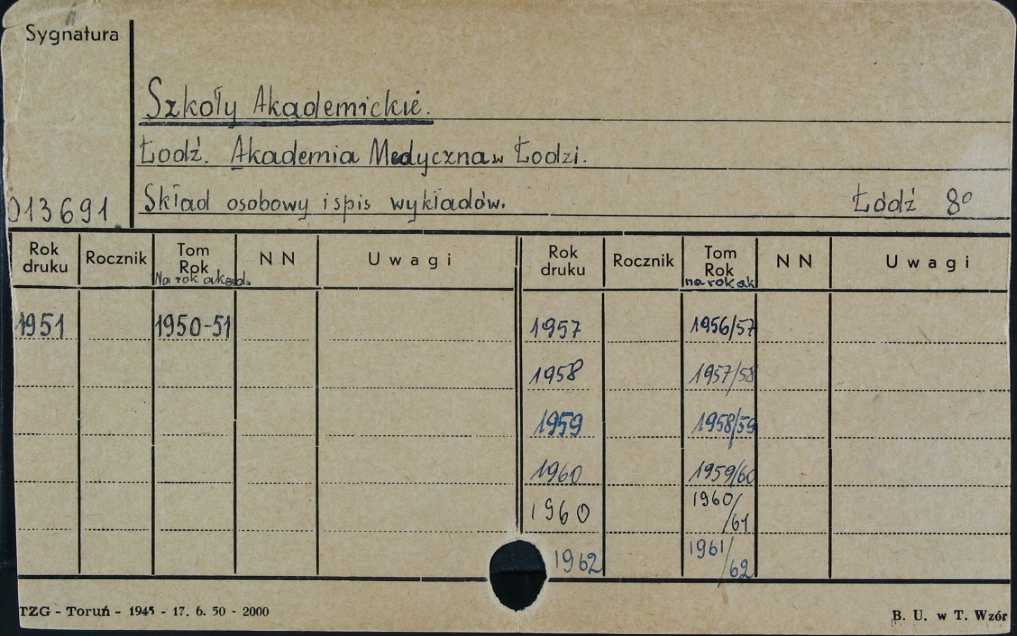 Sygnatura
Szkoły Akademickie.
Łódź. Akademia Medyczna w Łodzi.
013691 Skład osobowy i spis wykładów. Łódź 8º
Rok druku Rocznik Tom Rok Na rok akad. N N Uwagi Rok druku Rocznik Tom Rok na rok ak N N Uwagi
1951 1950-51 1957 1956/57
1958 1957/58
1959 1958/59
1960 1959/60
1960 1960/61
1962 1961/62
TZG - Toruń - 1945 - 17. 6. 50 - 2000 B. U. w T. Wzór